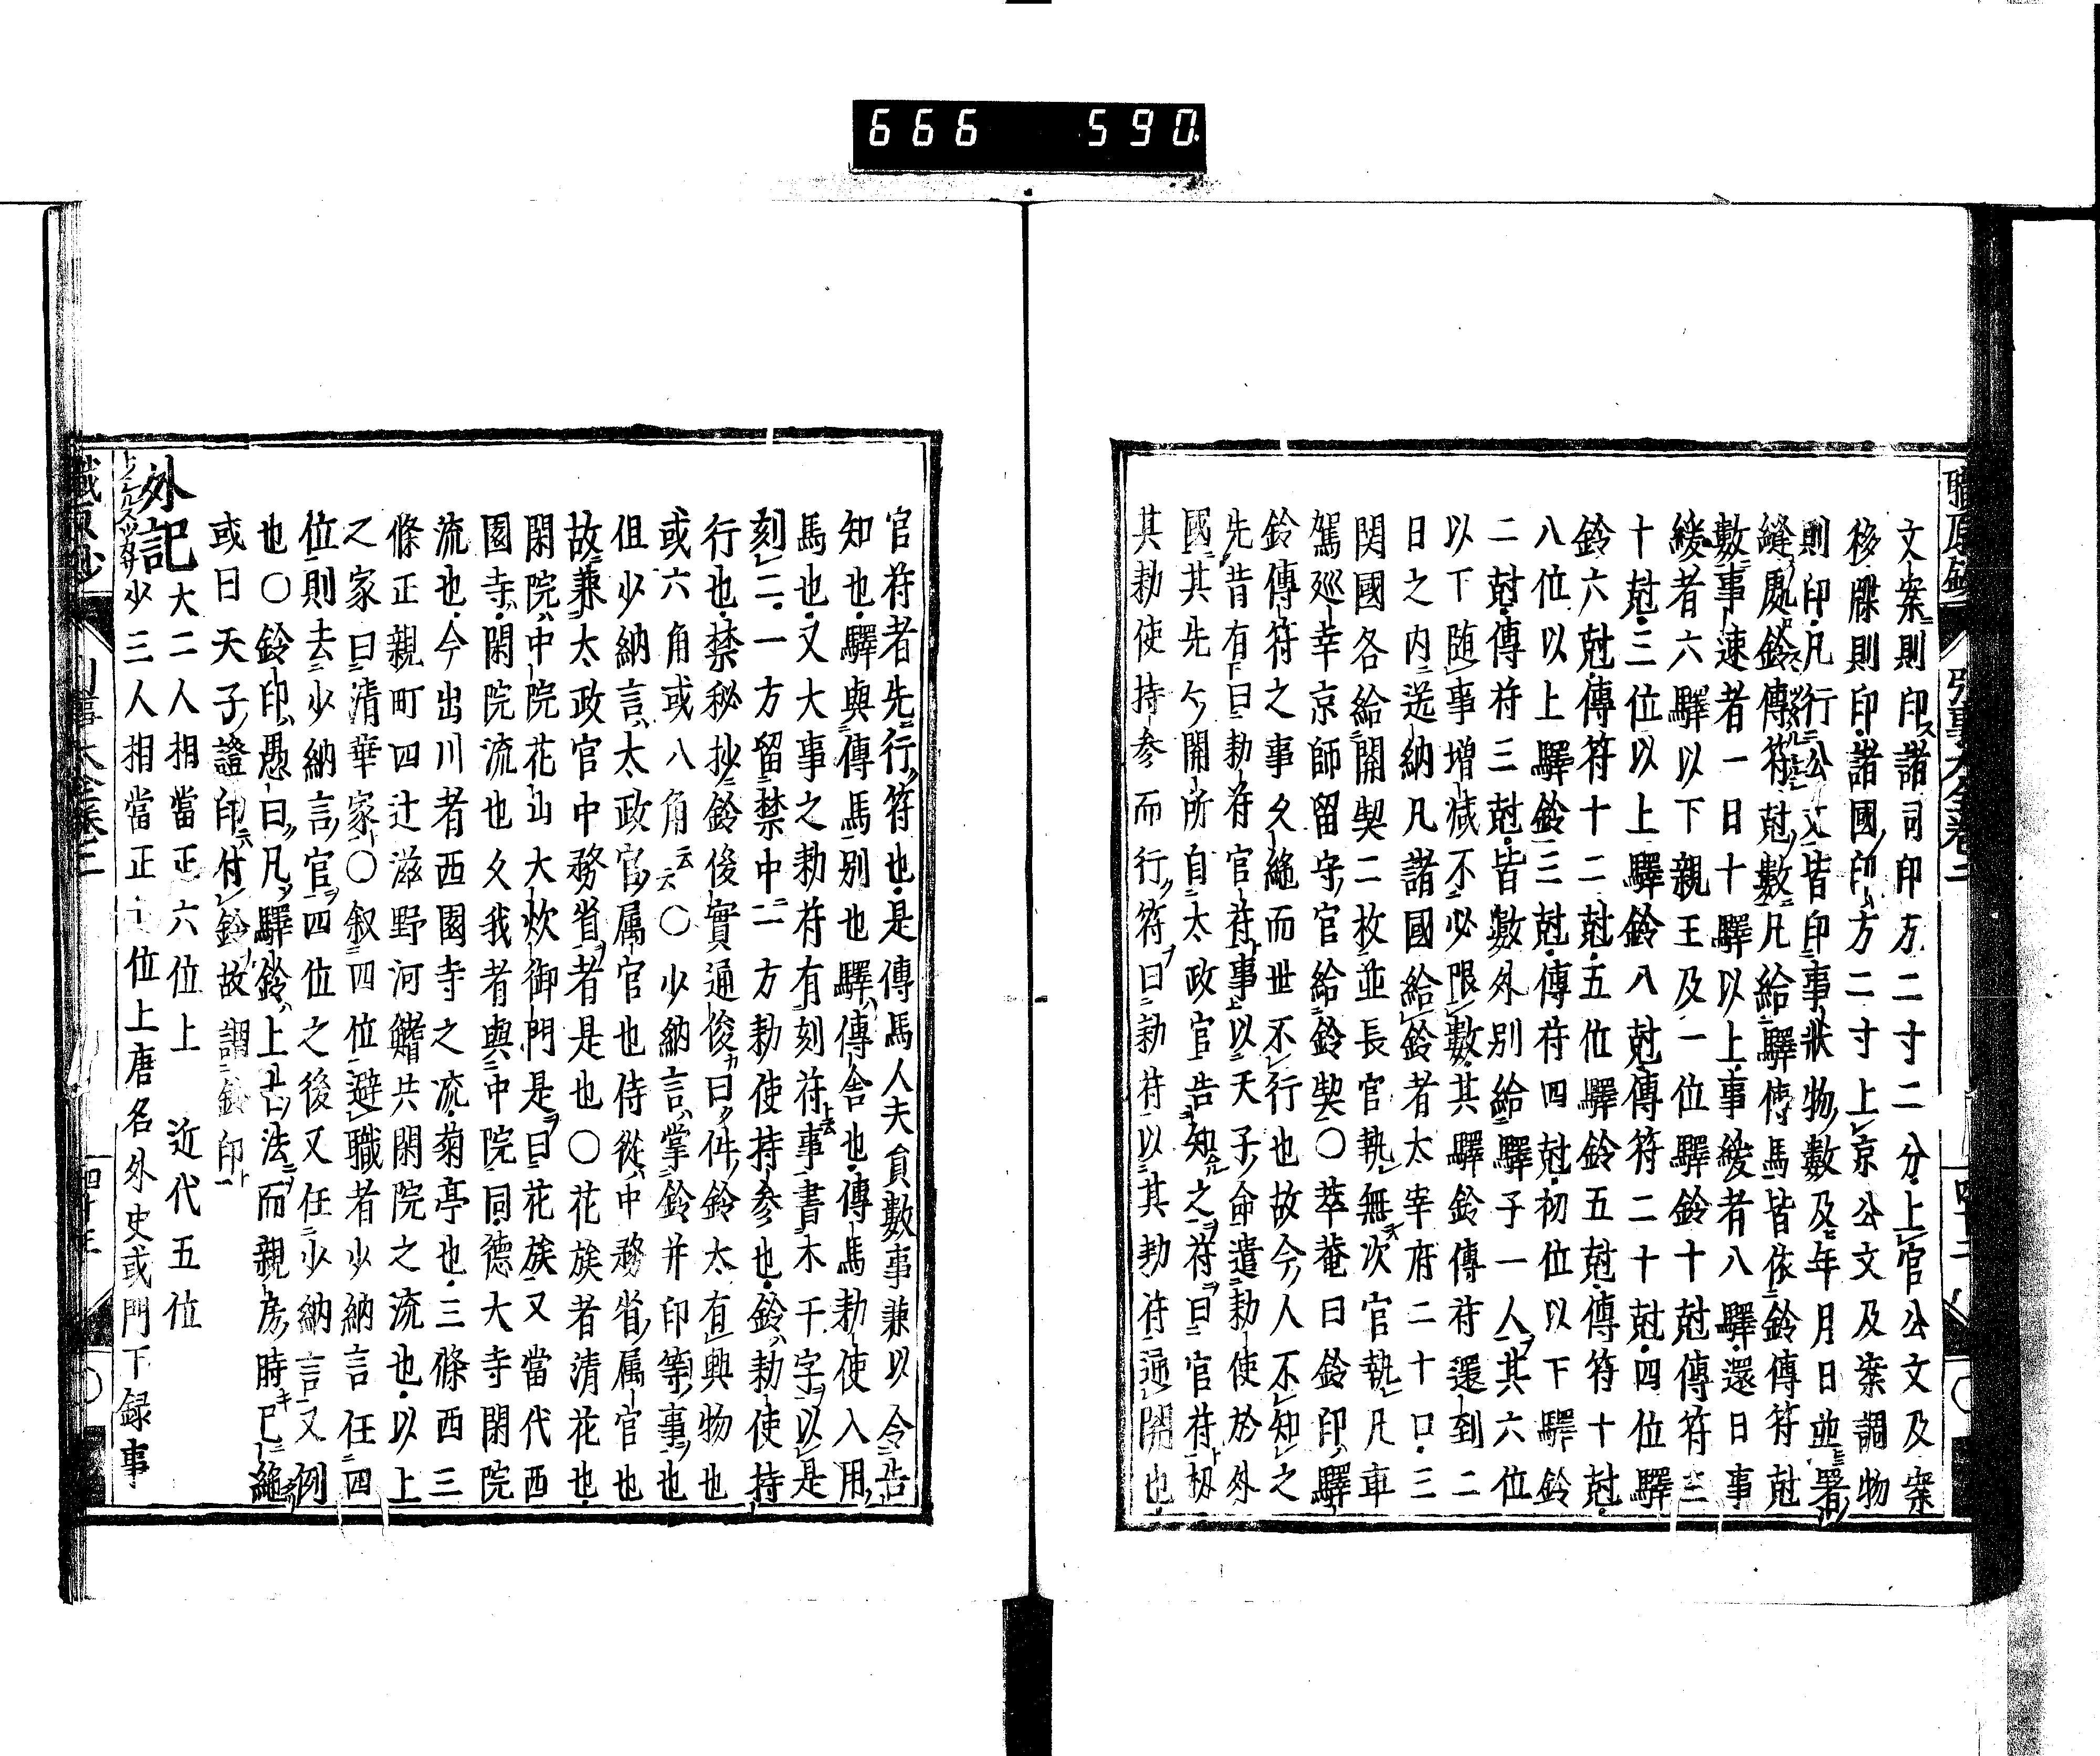 666 590
文案則印諸司印方二寸二分上官公文及案
移牒則印諸國印方二寸上京公文及案調物
則印凡行公文皆印事狀物數及年月日並署
縫處鈴傳符剋數凡給驛傳馬皆依鈴傳符剋
數事速者一日十驛以上事緩者八驛還日事
緩者六驛以下親王及一位驛鈴十剋傳符三
十剋三位以上驛鈴八剋傳符二十剋四位驛
鈴六剋傳符十二剋五位驛鈴五剋傳符十剋
八位以上驛鈴三剋傳符四剋初位以下驛鈴
二剋傳符三剋皆數外別給驛子一人其六位
以下随事增减不必限數其驛鈴傳符還到二
日之内送納凡諸國給鈴者太宰府二十口三
関國各給關契二枚並長官執無次官執凡車
駕巡幸京師留守官給鈴契〇萃菴曰鈴印驛
鈴傳符之事久絶而世不行也故今人不知之
先昔有曰勅符官符事以天子命遣勅使於外
國其先今關所自太政官告知之符曰官符扨
其勅使持參而行符曰勅符以其勅符通關也
官符者先行符也是傳馬人夫員數事兼以令告
知也驛與傳馬別也驛傳舍也傳馬勅使入用
馬也又大事之勅符有刻符事書木千字以是
刻二一方留禁中二方勅使持參也鈴勅使持
行也禁秘抄鈴後實通俊曰件鈴太有興物也
或六角或八角云云〇少納言掌鈴并印等事也
但少納言太政官属官也侍從中務省属官也
故兼太政官中務省者是也〇花族者清花也
閑院中院花山大炊御門是曰花族又當代西
園寺閑院流也久我者與中院同德大寺閑院
流也今出川者西園寺之流菊亭也三條西三
條正親町四辻滋野河鰭共閑院之流也以上
之家曰清華家〇叙四位避職者少納言任四
位則去少納言官四位之後又任少納言又例
也〇鈴印愚曰凡驛鈴上古法而親房時已絶
或曰天子證印付鈴故謂鈴印
外記大二人相當正六位上 近代五位
少三人相當正 位上唐名外史或門下録事